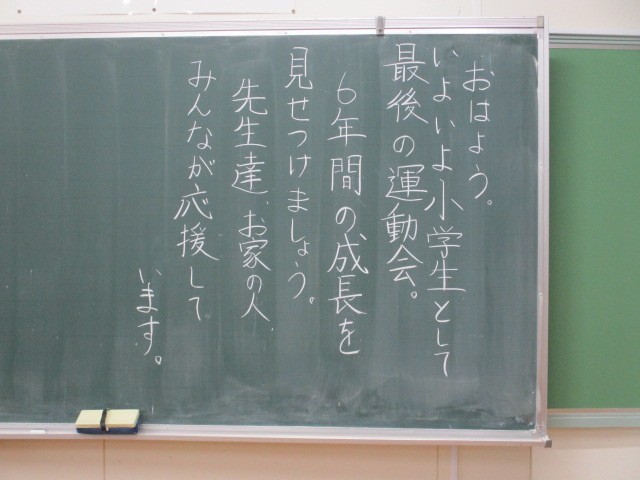 おはよう。
いよいよ小学生として
最後の運動会。
6年間の成長を
見せつけましょう。
先生達、お家の人、
みんなが応援して
います。